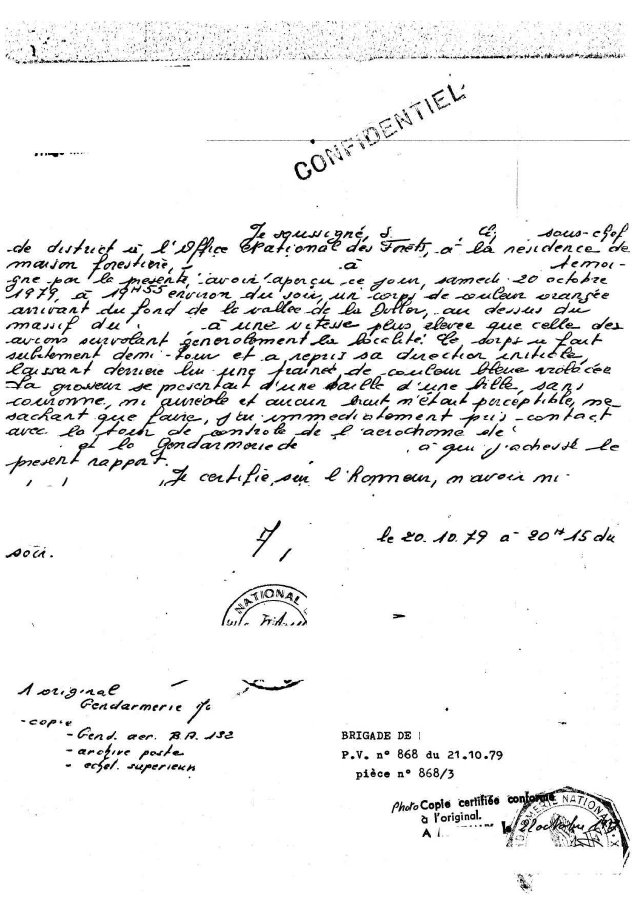 CONFIDENTIEL
Je soussigné, S. sous-chef
de district à l'Office National des Forêts, à la résidence de
maison forestière, à temoi-
gne par la presente, avoir aperçu ce jour, samedi 20 octobre
1979, à 19H55 environ du soir, un corps de couleur orangée
arrivant du fond de la vallée de la Doller, au dessus du
massif du à une vitesse plus elevee que celle des
avions survolant generalement la localité. Le corps a fait
subitement demi-tour et a repris sa direction initiale,
laissant derriere lui une trainée de couleur bleue violacée
La grosseur se presentait d'une taille d'une bille, sans
couronne, ni aureole et aucun bruit n'était perceptible, ne
sachant que faire, j'ai immediatement pris contact
avec la tour de contrôle de l'aerodrome de
et la Gendarmerie de à qui j'adresse le
present rapport.
Je certifie, sur l'Honneur, n'avoir mi-
le 20.10.79 à 20H15 du
soir.
NATIONAL
1 original
Gendarmerie
- copie
- Gend. aer. B.A. 132
- archive poste
- echel. superieur
BRIGADE DE
P.V. n° 868 du 21.10.79
pièce n° 868/3
Photo Copie certifiée conforme
à l'original.
A le 21 octobre 1979
GENDARMERIE NATIONALE